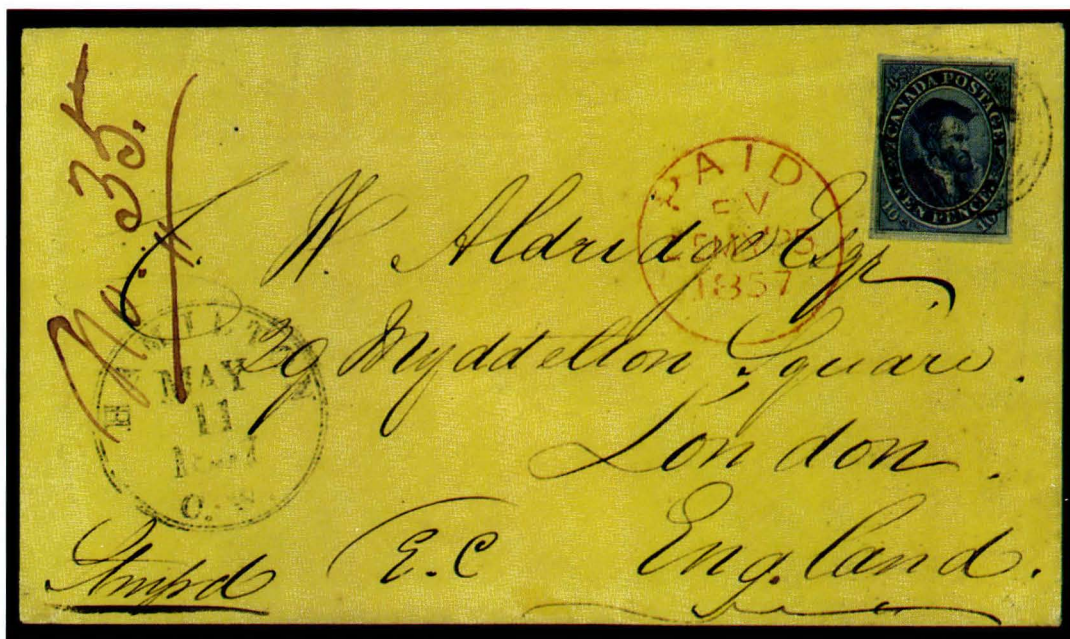 No. 35.
CANADA POSTAGE
TEN PENCE
PAID
1857
W. Aldridge Esqr
29 Myddelton Square.
London.
England.
HAMILTON
MAY
11
1857
C.W.
Stmpd
E.C